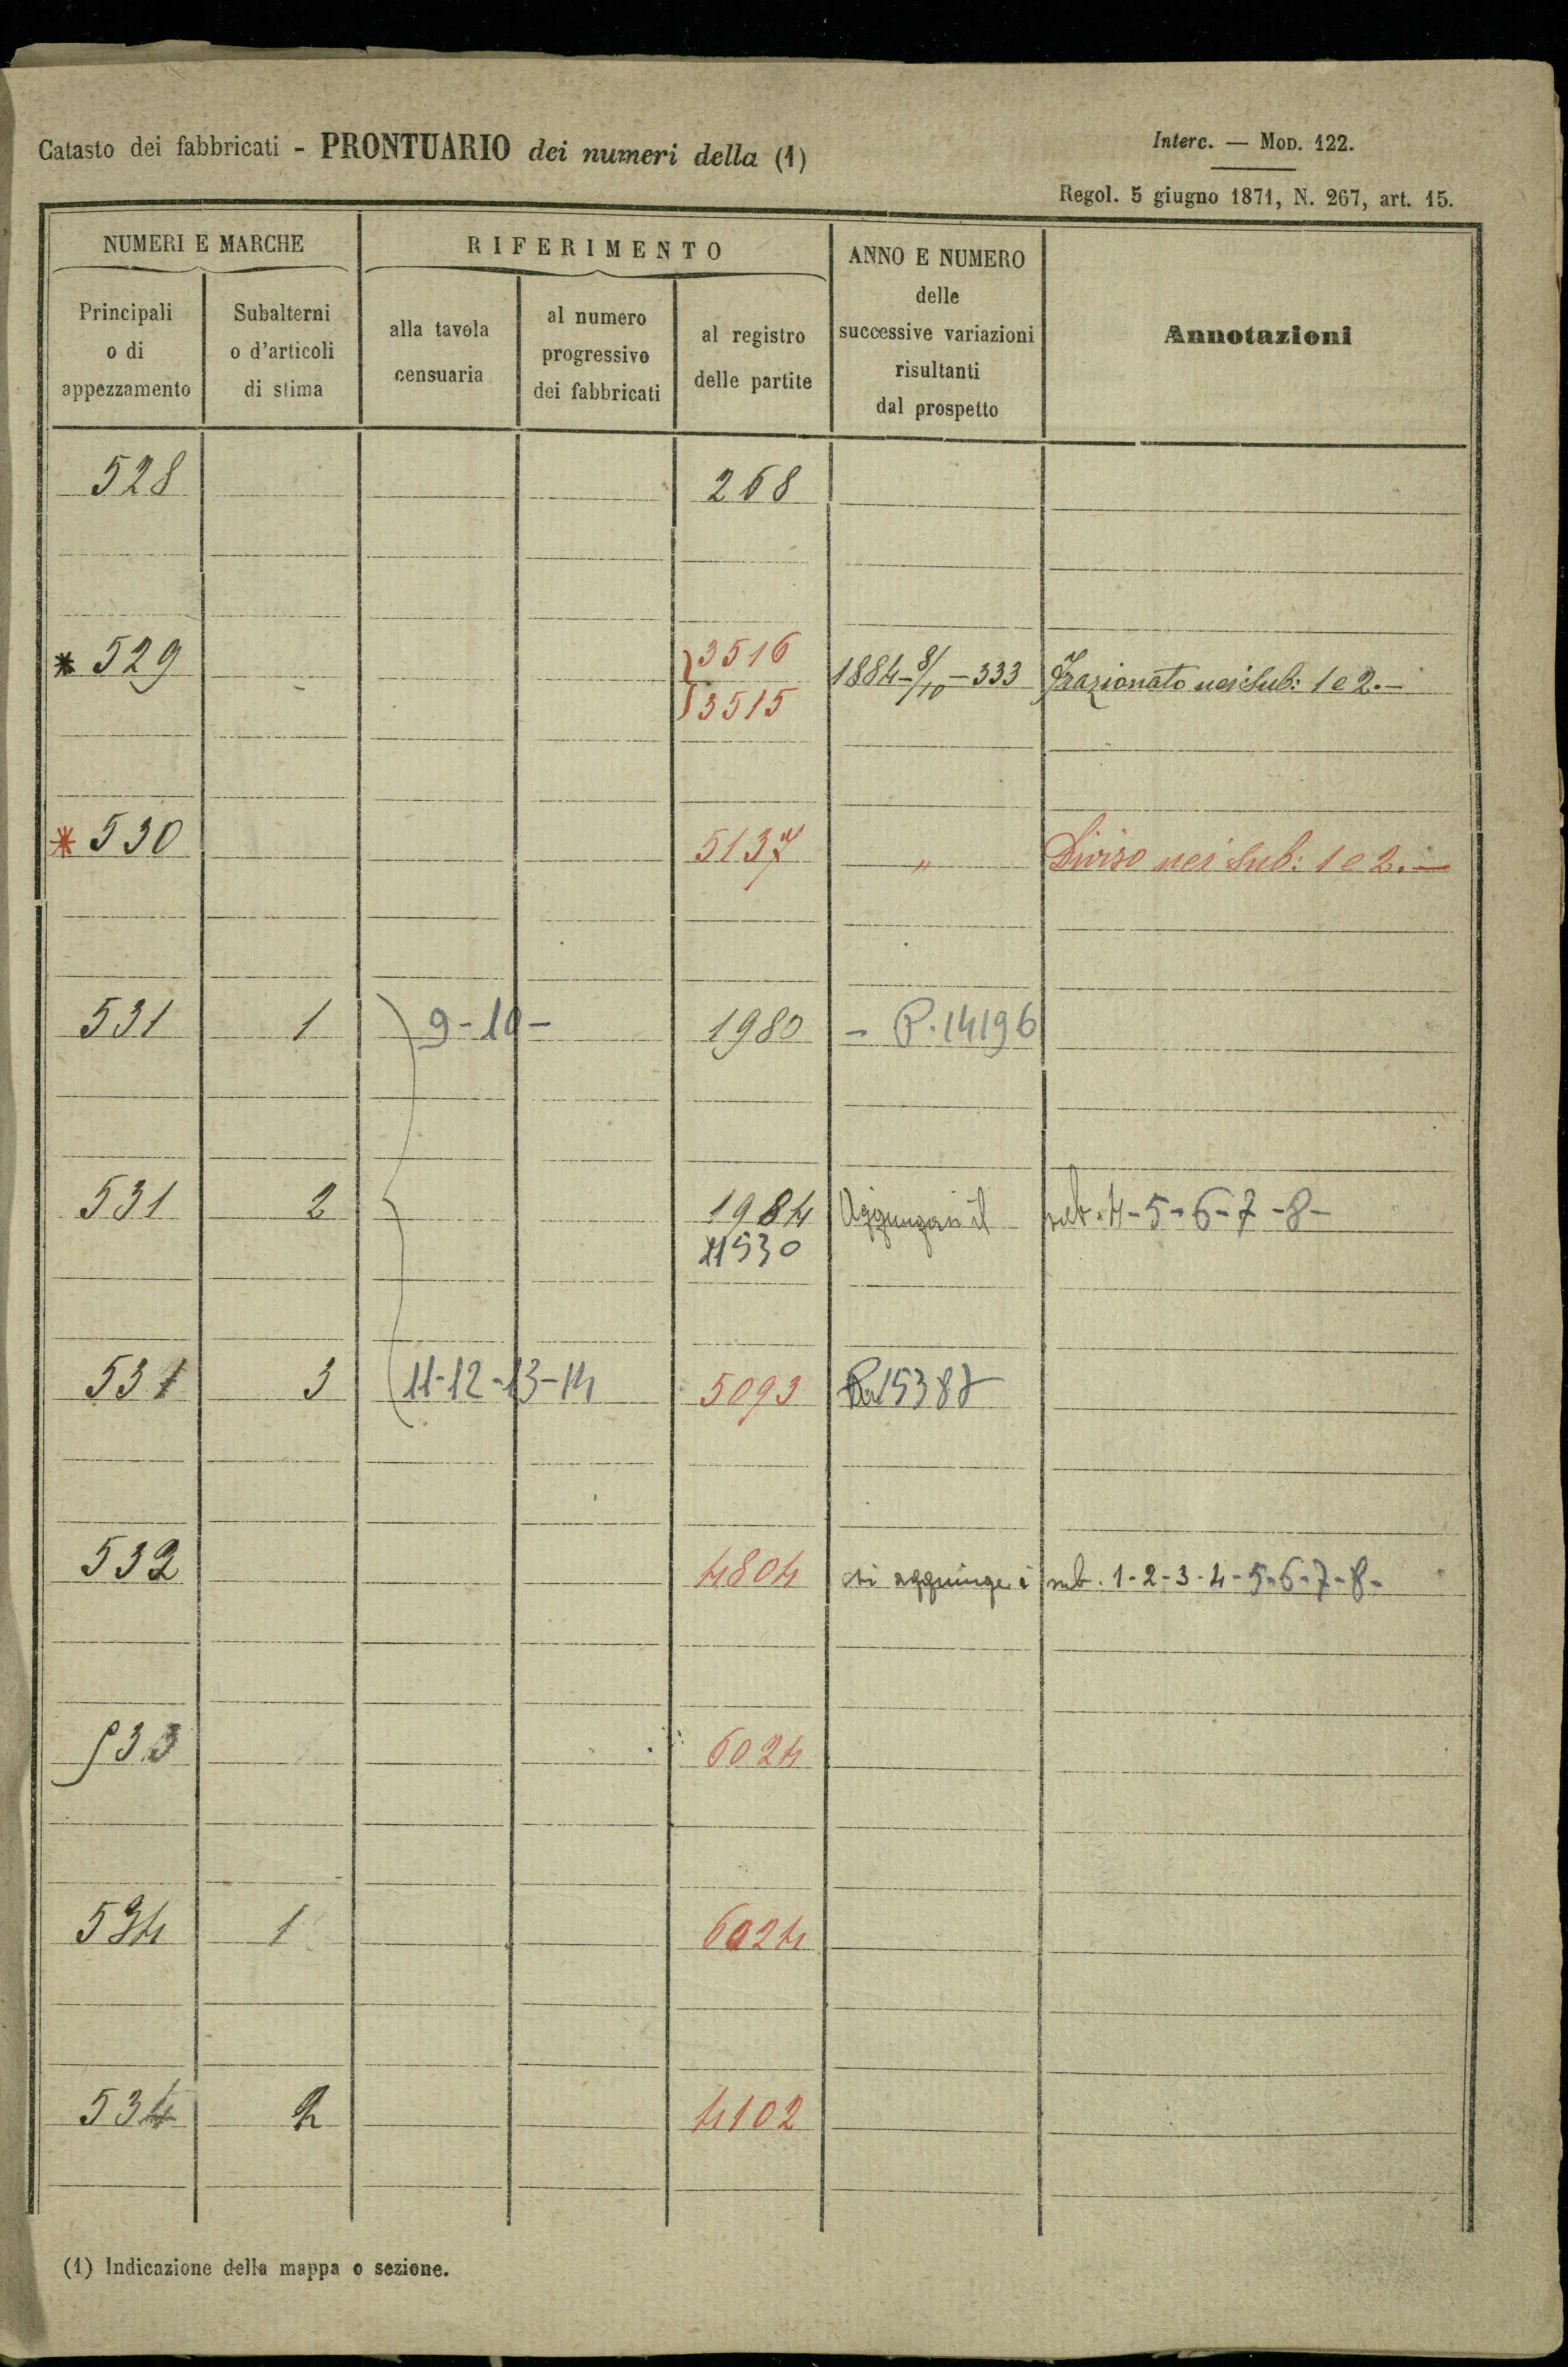 Catasto dei fabbricati - PRONTUARIO dei numeri della (1)
Interc. — Mod. 122.
Regol. 5 giugno 1871, N. 267, art. 15.
NUMERI E MARCHE
RIFERIMENTO
ANNO E NUMERO
delle
successive variazioni
risultanti
dal prospetto
Annotazioni
Principali
o di
appezzamento
Subalterni
o d'articoli
di stima
alla tavola
censuaria
al numero
progressivo
dei fabbricati
al registro
delle partite
528 268
* 529 3516 1884-8/10-333 Frazionato nei Sub: 1 e 2.-
3515
* 530 5137 " Diviso nei Sub: 1 e 2.-
531 1 9-10- 1980 - P. 14196
531 2 1984 Aggiungasi il sub. 4-5-6-7-8-
11530
531 3 11-12-13-14 5093 15387
532 4804 si aggiunge i sub. 1-2-3-4-5-6-7-8-
533 6024
534 1 6024
534 2 4102
(1) Indicazione della mappa o sezione.